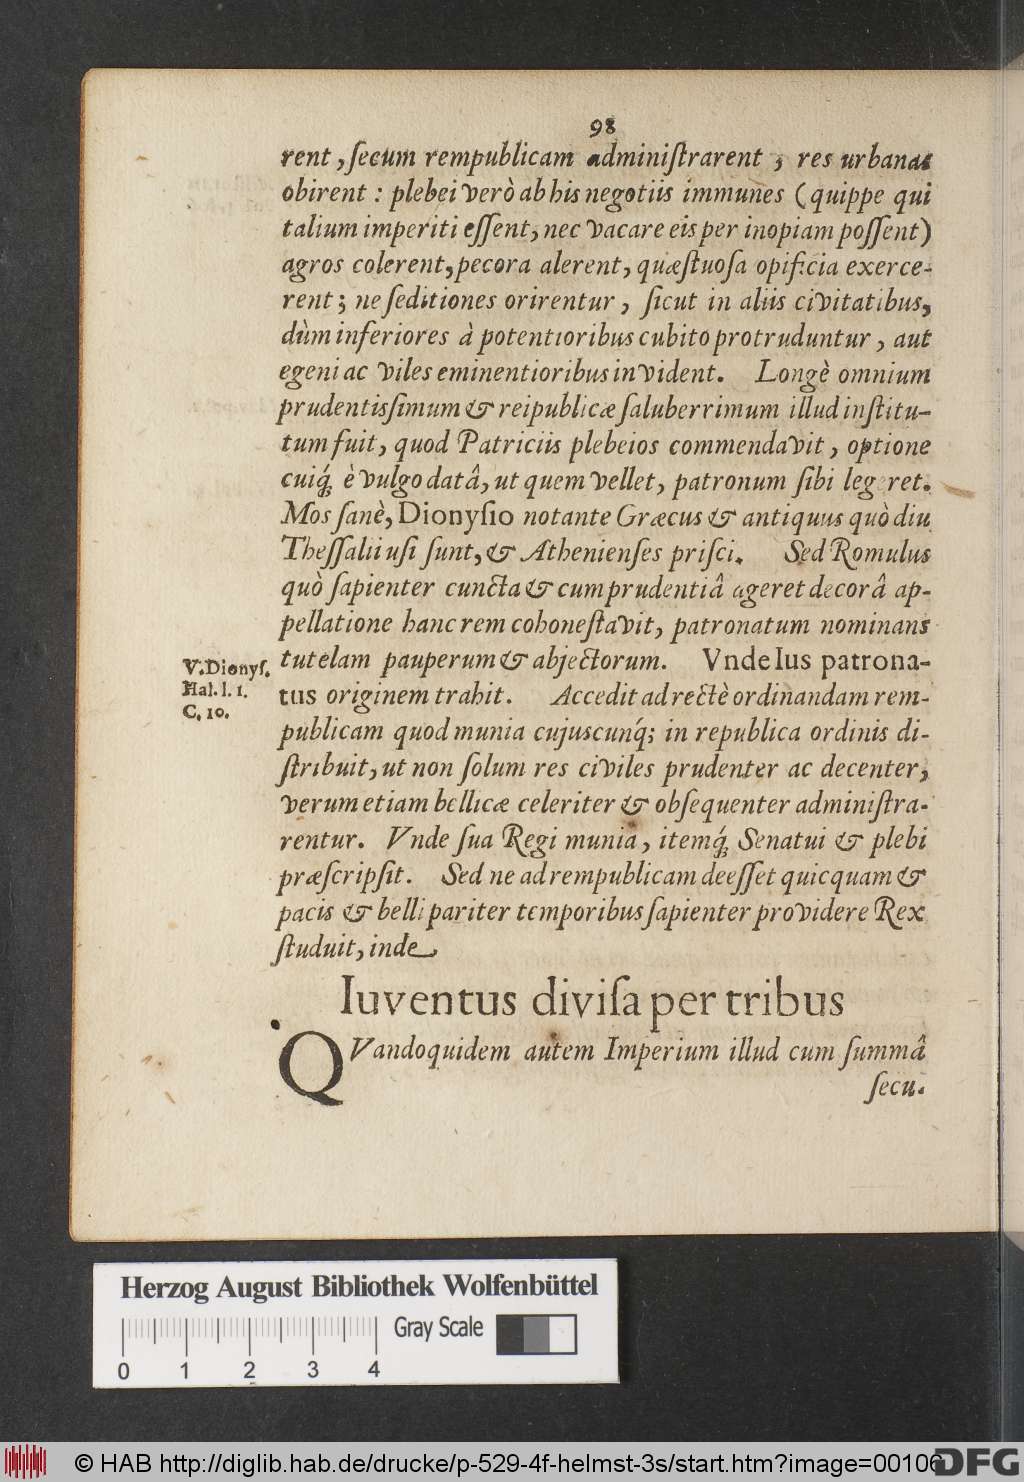 98
rent, ſecum rempublicam adminiſtrarent, res urbanas
obirent: plebei verò ab his negotiis immunes (quippe qui
talium imperiti eſſent, nec vacare eis per inopiam poſſent)
agros colerent, pecora alerent, quæſtuoſa opificia exerce-
rent; ne ſeditiones orirentur, ſicut in aliis civitatibus,
dùm inferiores à potentioribus cubito protruduntur, aut
egeni ac viles eminentioribus invident. Longè omnium
prudentisſimum & reipublicæ ſaluberrimum illud inſtitu-
tum fuit, quod Patriciis plebeios commendavit, optione
cuiq́; è vulgo datâ, ut quem vellet, patronum ſibi legeret.
Mos ſanè, Dionyſio notante Græcus & antiquus quò diu
Theſſalii uſi ſunt, & Athenienſes priſci. Sed Romulus
quò ſapienter cuncta & cum prudentiâ ageret decorâ ap-
pellatione hanc rem cohoneſtavit, patronatum nominans
tutelam pauperum & abjectorum. Vnde Ius patrona-
V. Dionyſ.
Hal. l. 1.
C. 10.
tus originem trahit. Accedit ad rectè ordinandam rem-
publicam quod munia cujuscunq́; in republica ordinis di-
ſtribuit, ut non ſolum res civiles prudenter ac decenter,
verum etiam bellicæ celeriter & obſequenter adminiſtra-
rentur. Vnde ſua Regi munia, itemq́; Senatui & plebi
præſcripſit. Sed ne ad rempublicam deeſſet quicquam &
pacis & belli pariter temporibus ſapienter providere Rex
ſtuduit, inde
Iuventus diviſa per tribus
QVandoquidem autem Imperium illud cum ſummâ
ſecu-
Herzog August Bibliothek Wolfenbüttel
Gray Scale
0 1 2 3 4
© HAB http://diglib.hab.de/drucke/p-529-4f-helmst-3s/start.htm?image=00106
DFG